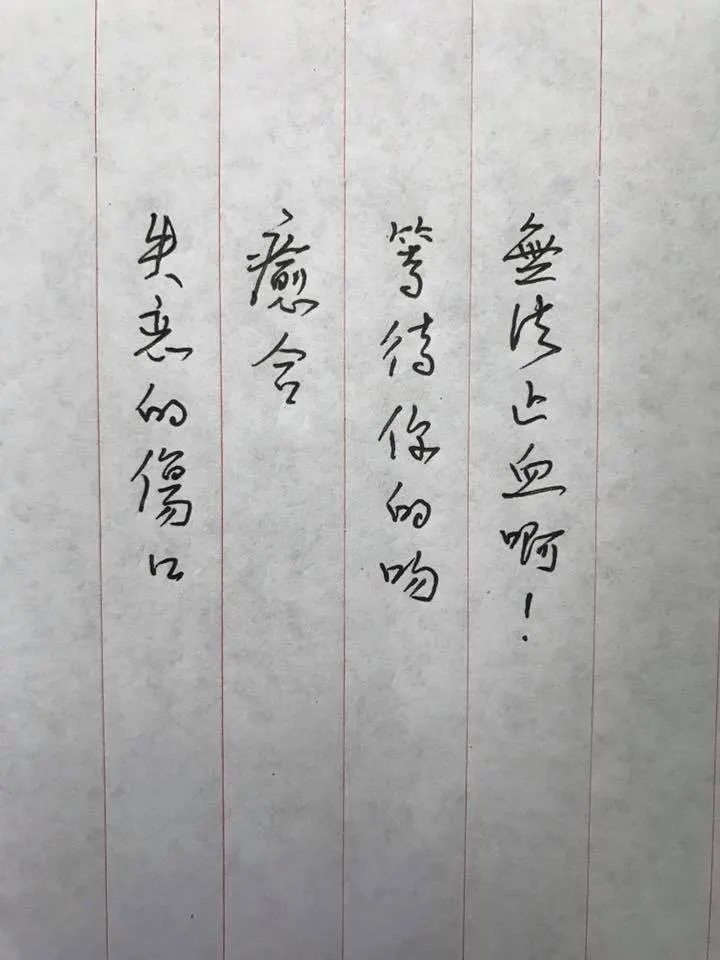 無法止血啊！
等待你的吻
癒合
失戀的傷口